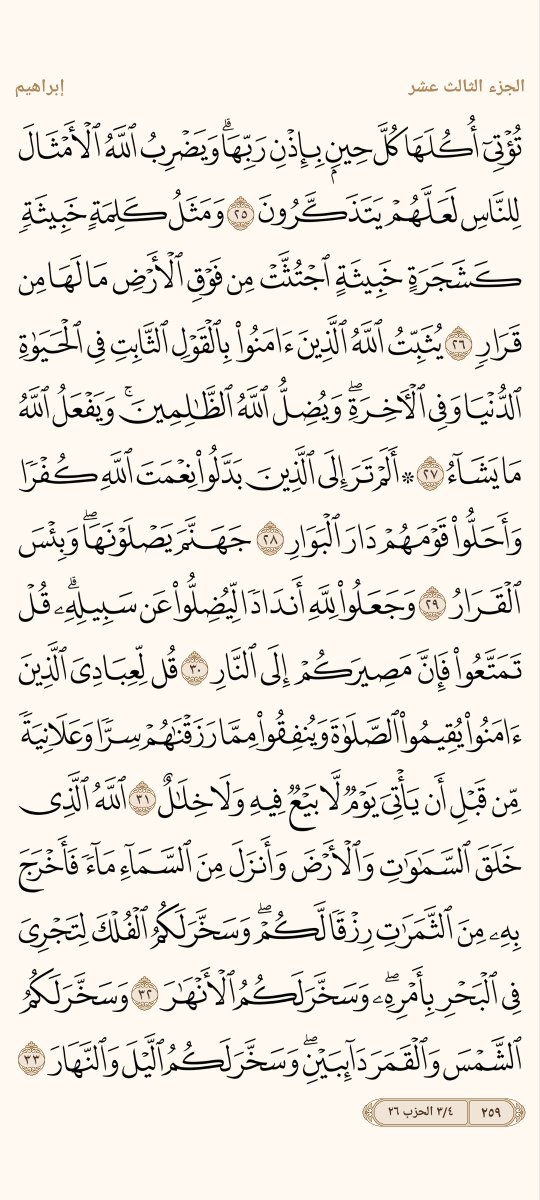 الجزء الثالث عشر
إبراهيم
تُؤْتِىٓ أُكُلَهَا كُلَّ حِينٍۭ بِإِذْنِ رَبِّهَاۗ وَيَضْرِبُ ٱللَّهُ ٱلْأَمْثَالَ
لِلنَّاسِ لَعَلَّهُمْ يَتَذَكَّرُونَ ٢٥ وَمَثَلُ كَلِمَةٍ خَبِيثَةٍ
كَشَجَرَةٍ خَبِيثَةٍ ٱجْتُثَّتْ مِن فَوْقِ ٱلْأَرْضِ مَا لَهَا مِن
قَرَارٍ ٢٦ يُثَبِّتُ ٱللَّهُ ٱلَّذِينَ ءَامَنُوا۟ بِٱلْقَوْلِ ٱلثَّابِتِ فِى ٱلْحَيَوٰةِ
ٱلدُّنْيَا وَفِى ٱلْـَٔاخِرَةِۖ وَيُضِلُّ ٱللَّهُ ٱلظَّٰلِمِينَۚ وَيَفْعَلُ ٱللَّهُ
مَا يَشَآءُ ٢٧ ۞ أَلَمْ تَرَ إِلَى ٱلَّذِينَ بَدَّلُوا۟ نِعْمَتَ ٱللَّهِ كُفْرًا
وَأَحَلُّوا۟ قَوْمَهُمْ دَارَ ٱلْبَوَارِ ٢٨ جَهَنَّمَ يَصْلَوْنَهَاۖ وَبِئْسَ
ٱلْقَرَارُ ٢٩ وَجَعَلُوا۟ لِلَّهِ أَندَادًا لِّيُضِلُّوا۟ عَن سَبِيلِهِۦۗ قُلْ
تَمَتَّعُوا۟ فَإِنَّ مَصِيرَكُمْ إِلَى ٱلنَّارِ ٣٠ قُل لِّعِبَادِىَ ٱلَّذِينَ
ءَامَنُوا۟ يُقِيمُوا۟ ٱلصَّلَوٰةَ وَيُنفِقُوا۟ مِمَّا رَزَقْنَٰهُمْ سِرًّا وَعَلَانِيَةً
مِّن قَبْلِ أَن يَأْتِىَ يَوْمٌ لَّا بَيْعٌ فِيهِ وَلَا خِلَٰلٌ ٣١ ٱللَّهُ ٱلَّذِى
خَلَقَ ٱلسَّمَٰوَٰتِ وَٱلْأَرْضَ وَأَنزَلَ مِنَ ٱلسَّمَآءِ مَآءً فَأَخْرَجَ
بِهِۦ مِنَ ٱلثَّمَرَٰتِ رِزْقًا لَّكُمْۖ وَسَخَّرَ لَكُمُ ٱلْفُلْكَ لِتَجْرِىَ
فِى ٱلْبَحْرِ بِأَمْرِهِۦۖ وَسَخَّرَ لَكُمُ ٱلْأَنْهَٰرَ ٣٢ وَسَخَّرَ لَكُمُ
ٱلشَّمْسَ وَٱلْقَمَرَ دَآئِبَيْنِۖ وَسَخَّرَ لَكُمُ ٱلَّيْلَ وَٱلنَّهَارَ ٣٣
٢٥٩
٣/٤ الحزب ٢٦